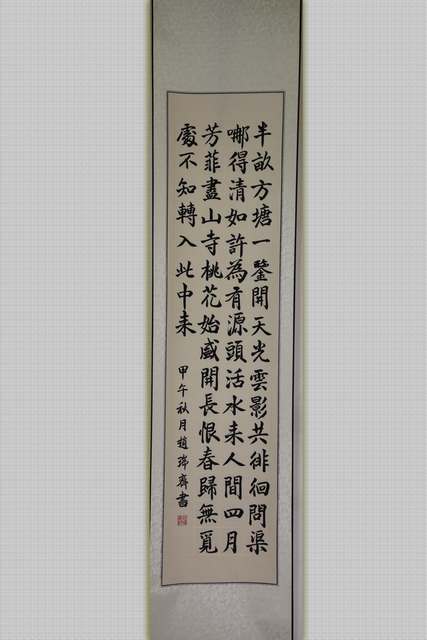 半畝方塘一鑒開天光雲影共徘徊問渠
哪得清如許為有源頭活水来人間四月
芳菲盡山寺桃花始盛開長恨春歸無覓
處不知轉入此中来
甲午秋月趙瑞齊書